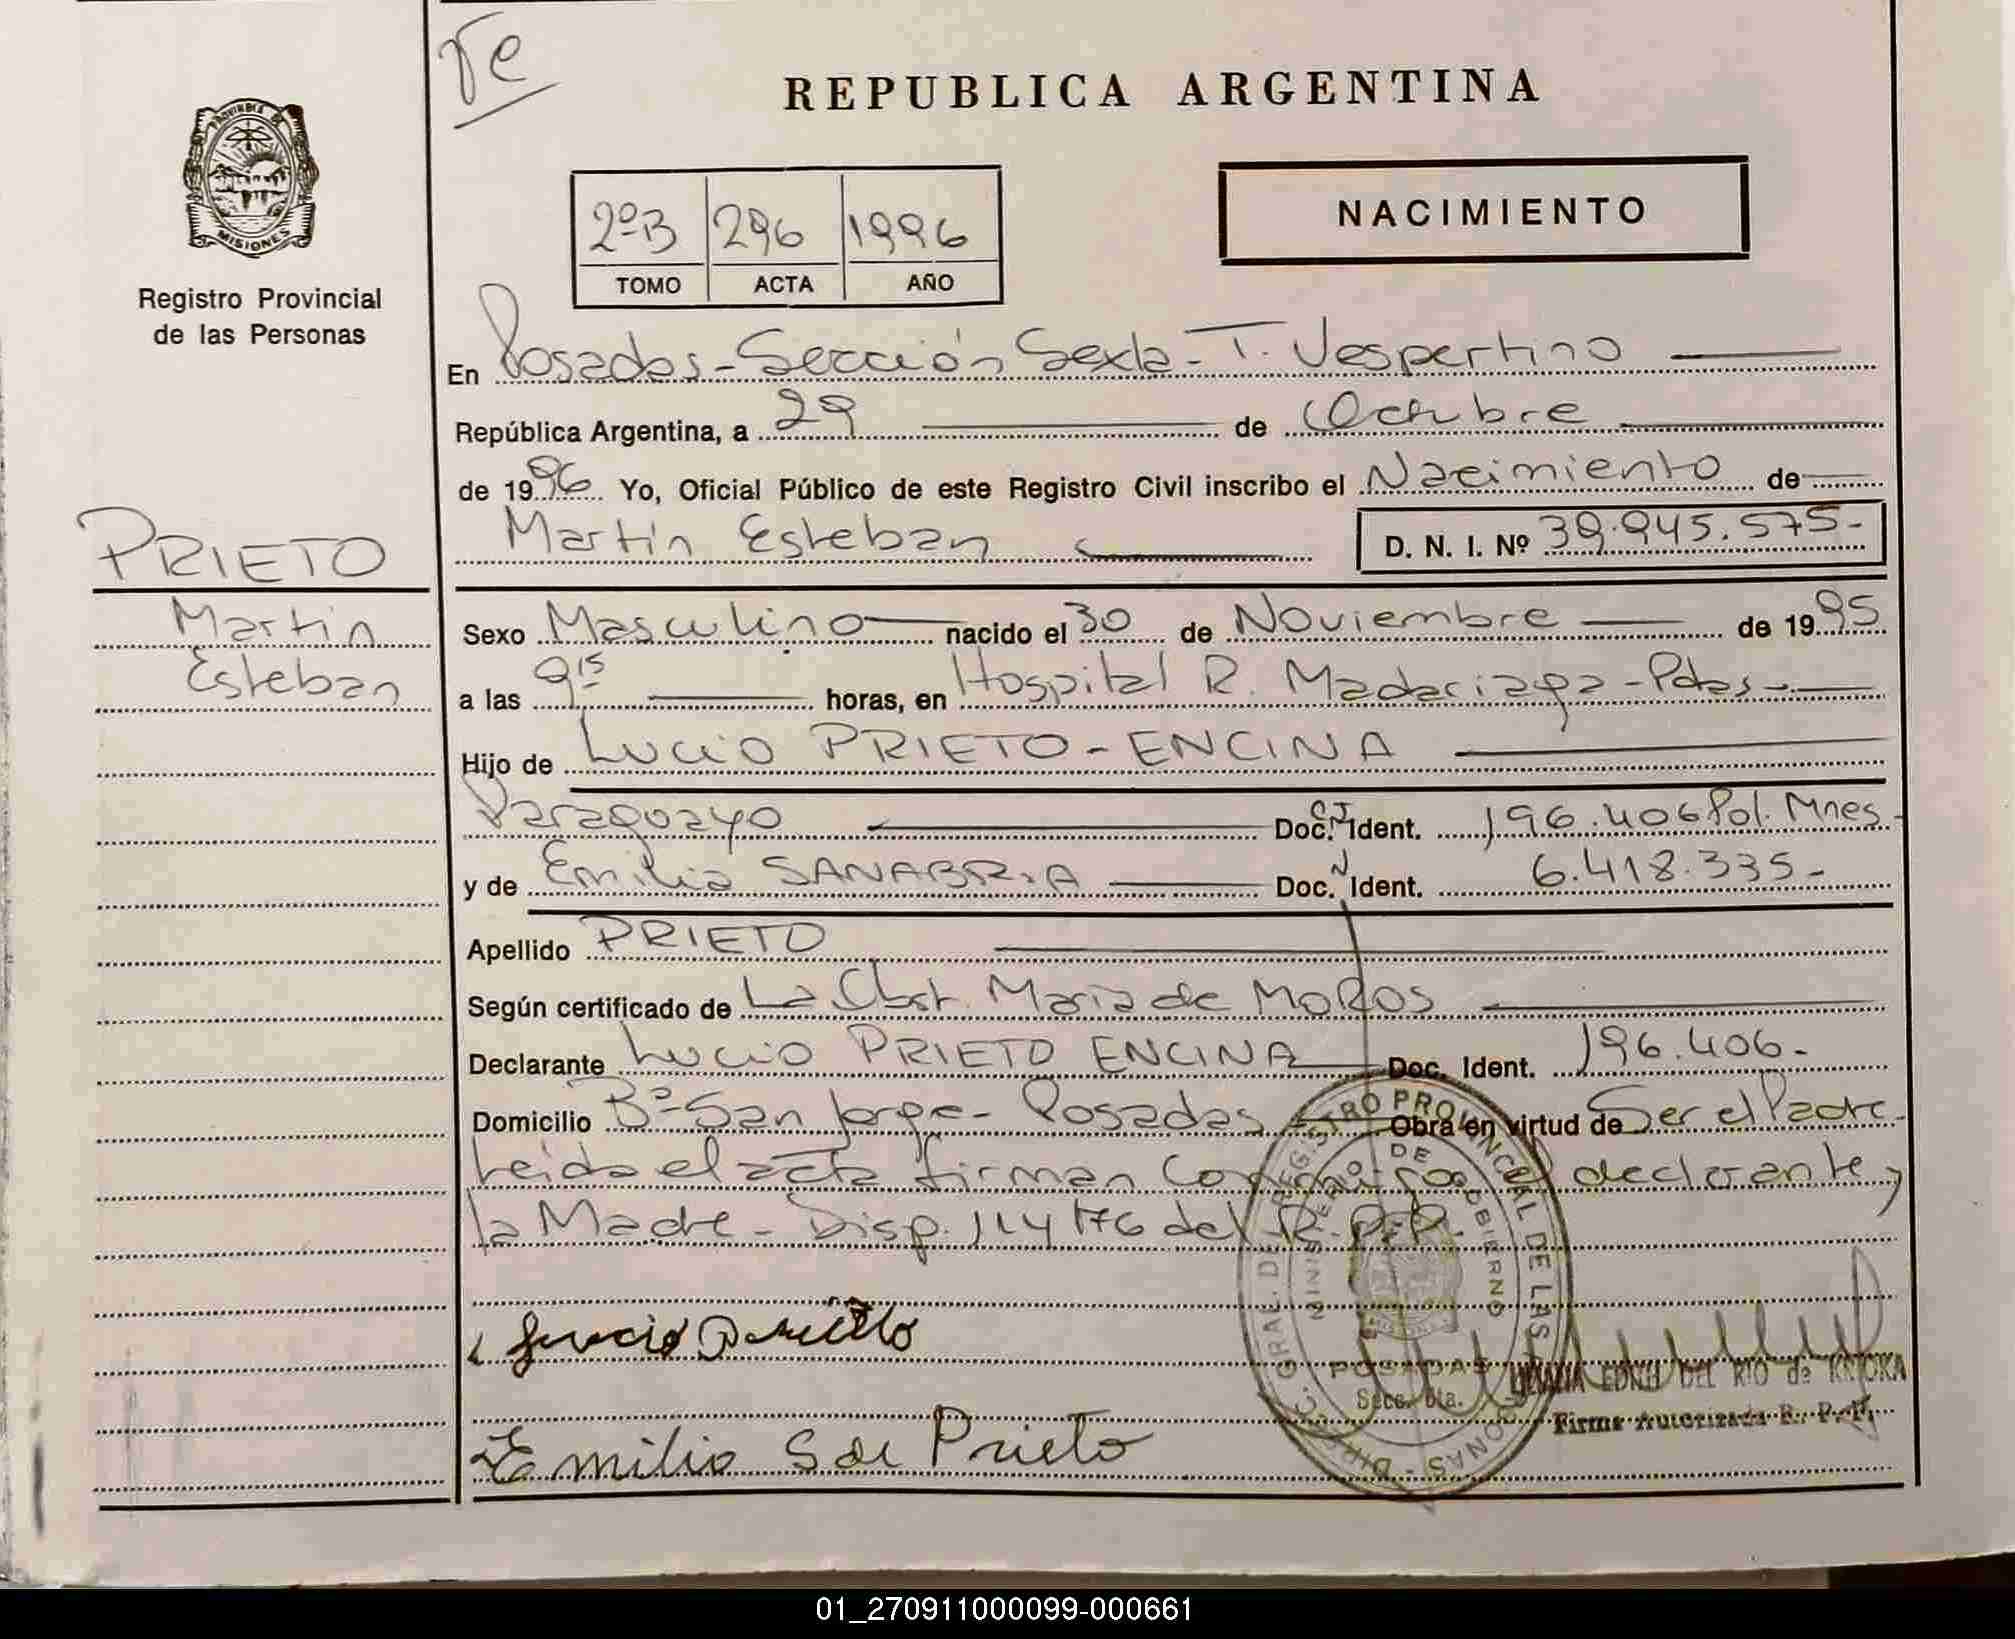 Te
REPUBLICA ARGENTINA
PROVINCIA DE
MISIONES
Registro Provincial
de las Personas
2ºB 296 1996
TOMO ACTA AÑO
NACIMIENTO
En Posadas-Sección Sexta-T. Vespertino
República Argentina, a 29 de Octubre
de 1996 Yo, Oficial Público de este Registro Civil inscribo el Nacimiento de
Martín Esteban D. N. I. Nº 39.945.575-
PRIETO
Martín
Esteban
Sexo Masculino nacido el 30 de Noviembre de 1995
a las 9 15 horas, en Hospital R. Madariaga-Pdas-
Hijo de Lucio PRIETO-ENCINA
Paraguayo Doc. C.I. Ident. 196.406 Pol. Mnes-
y de Emilia SANABRIA Doc. N Ident. 6.418.335-
Apellido PRIETO
Según certificado de La Obst. Maria de MOROS
Declarante Lucio PRIETO ENCINA Doc. Ident. 196.406-
Domicilio Bº San Jorge- Posadas Obra en virtud de Ser el Padre-
Leida el acta firman conmigo el declarante y
la Madre- Disp. 114/76 del R.P.P.
DIREC. GRAL. DE REGISTRO PROVINCIAL DE LAS PERSONAS
MINISTERIO DE GOBIERNO
POSADAS
Secc. 6ta.
Lucio Prieto
EDNIL DEL RIO de
Firma Autorizada R. P. P.
Emilia S de Prieto
01_270911000099-000661